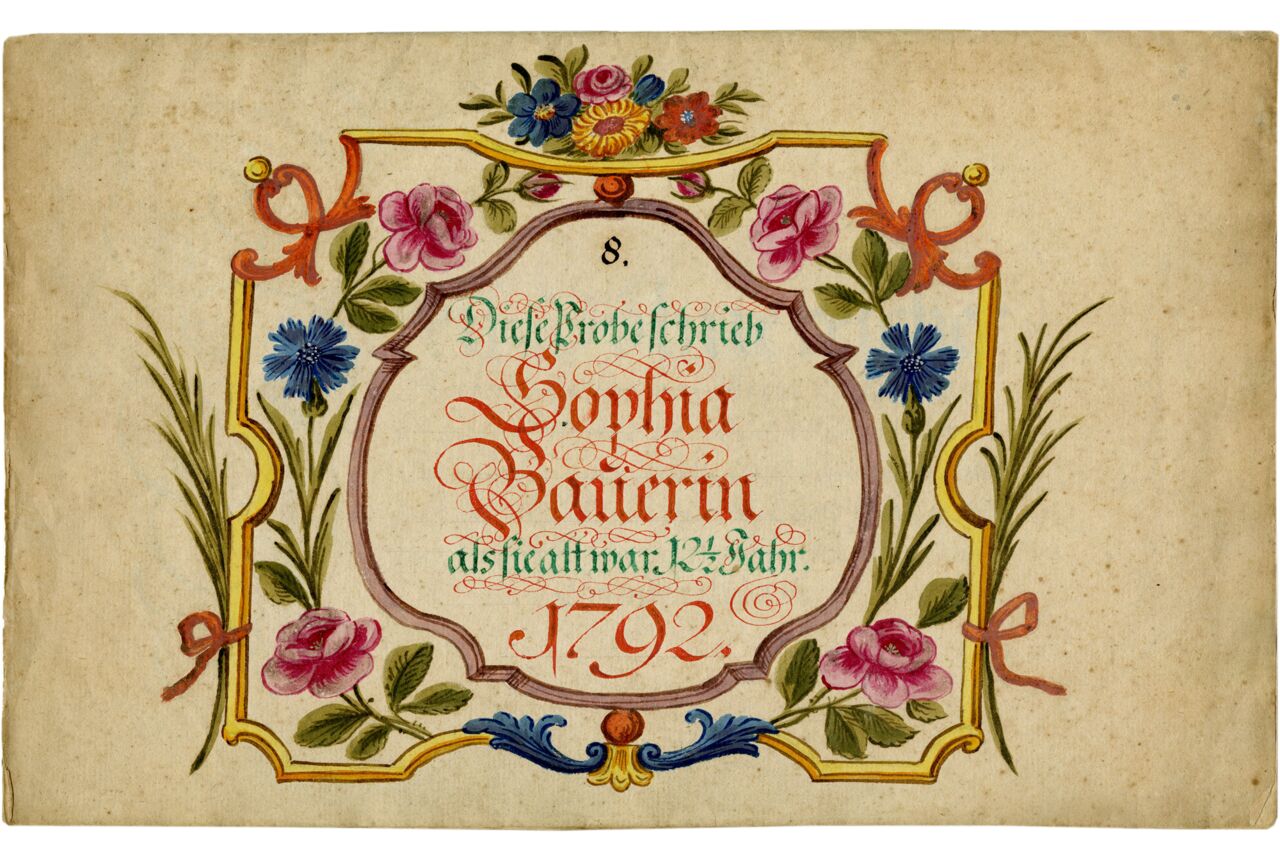 8.
Diese Probe schrieb
Sophia
Bauerin
als sie alt war 12½ Jahr.
1792.